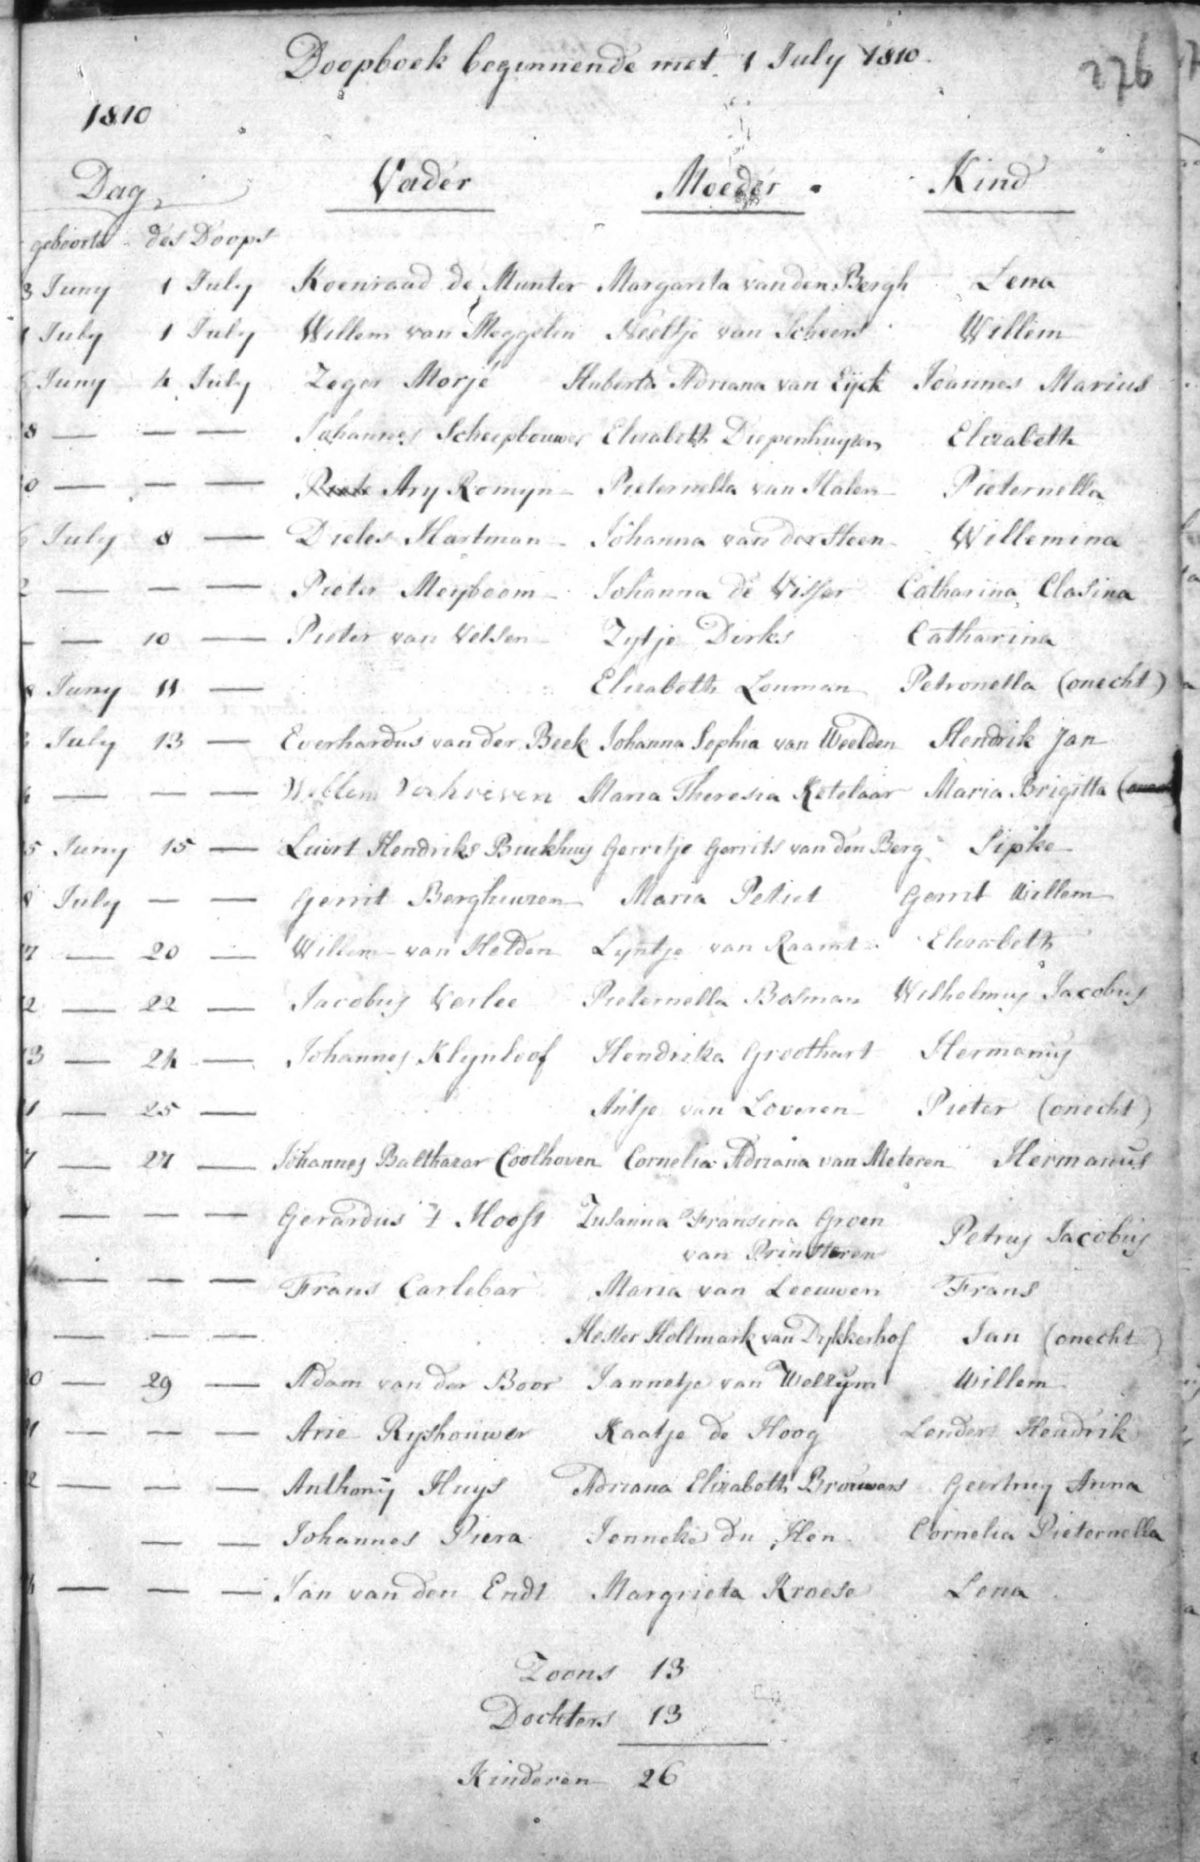 Doopboek beginnende met 1 July 1810.
276
1810
Dag Vader Moeder Kind
geboorte des Doops
3 Juny 1 July Koenraad de Munter Margareta van den Bergh Lena
1 July 1 July Willem van Meggelen Neeltje van Scheers Willem
Juny 4 July Zeger Morjé Huberta Adriana van Eyck Joannes Marius
8 — — — Johannes Scheepbouwer Elizabeth Diepenhuysen Elizabeth
0 — — — Ary Romyn Pieternella van Halen Pieternella
6 July 8 — Dieles Hartman Johanna van der Steen Willemina
2 — — — Pieter Meyboom Johanna de Visser Catharina Clasina
— — 10 — Pieter van Velsen Zytje Dirks Catharina
8 Juny 11 — Elizabeth Louman Petronella (onecht)
July 13 — Everhardus van der Beek Johanna Sophia van Weelden Hendrik Jan
— — — Willem Verhoeven Maria Theresia Ketelaar Maria Brigitta
5 Juny 15 — Luirt Hendriks Buikhuy Gerritje Gerrits van den Berg Sipke
8 July — — Gerrit Berghuizen Maria Petiet Gerrit Willem
7 — 20 — Willem van Helden Lyntje van Raamt Elizabeth
2 — 22 — Jacobus Verlee Pieternella Bosman Wilhelmus Jacobus
13 — 24 — Johannes Klynloof Hendrika Groothart Hermanus
1 — 25 — Antje van Loveren Pieter (onecht)
7 — 27 — Johannes Balthazar Coolhoven Cornelia Adriana van Meteren Hermanus
— — — Gerardus 't Hooft Zusanna Fransina Groen
van Prinsteren Petrus Jacobus
— — — Frans Carlebar Maria van Leeuwen Frans
— — — Hester Holtmark van Dykkerhof Jan (onecht)
0 — 29 — Adam van der Boor Jannetje van Welzym Willem
1 — — — Arie Ryshouwer Kaatje de Hoog Lendert Hendrik
2 — — — Anthony Huys Adriana Elizabeth Brouwers Geertruy Anna
— — Johannes Piera Jenneke du Hen Cornelia Pieternella
— — — Jan van den Endt Margrieta Kroese Lena
Zoons 13
Dochters 13
Kinderen 26